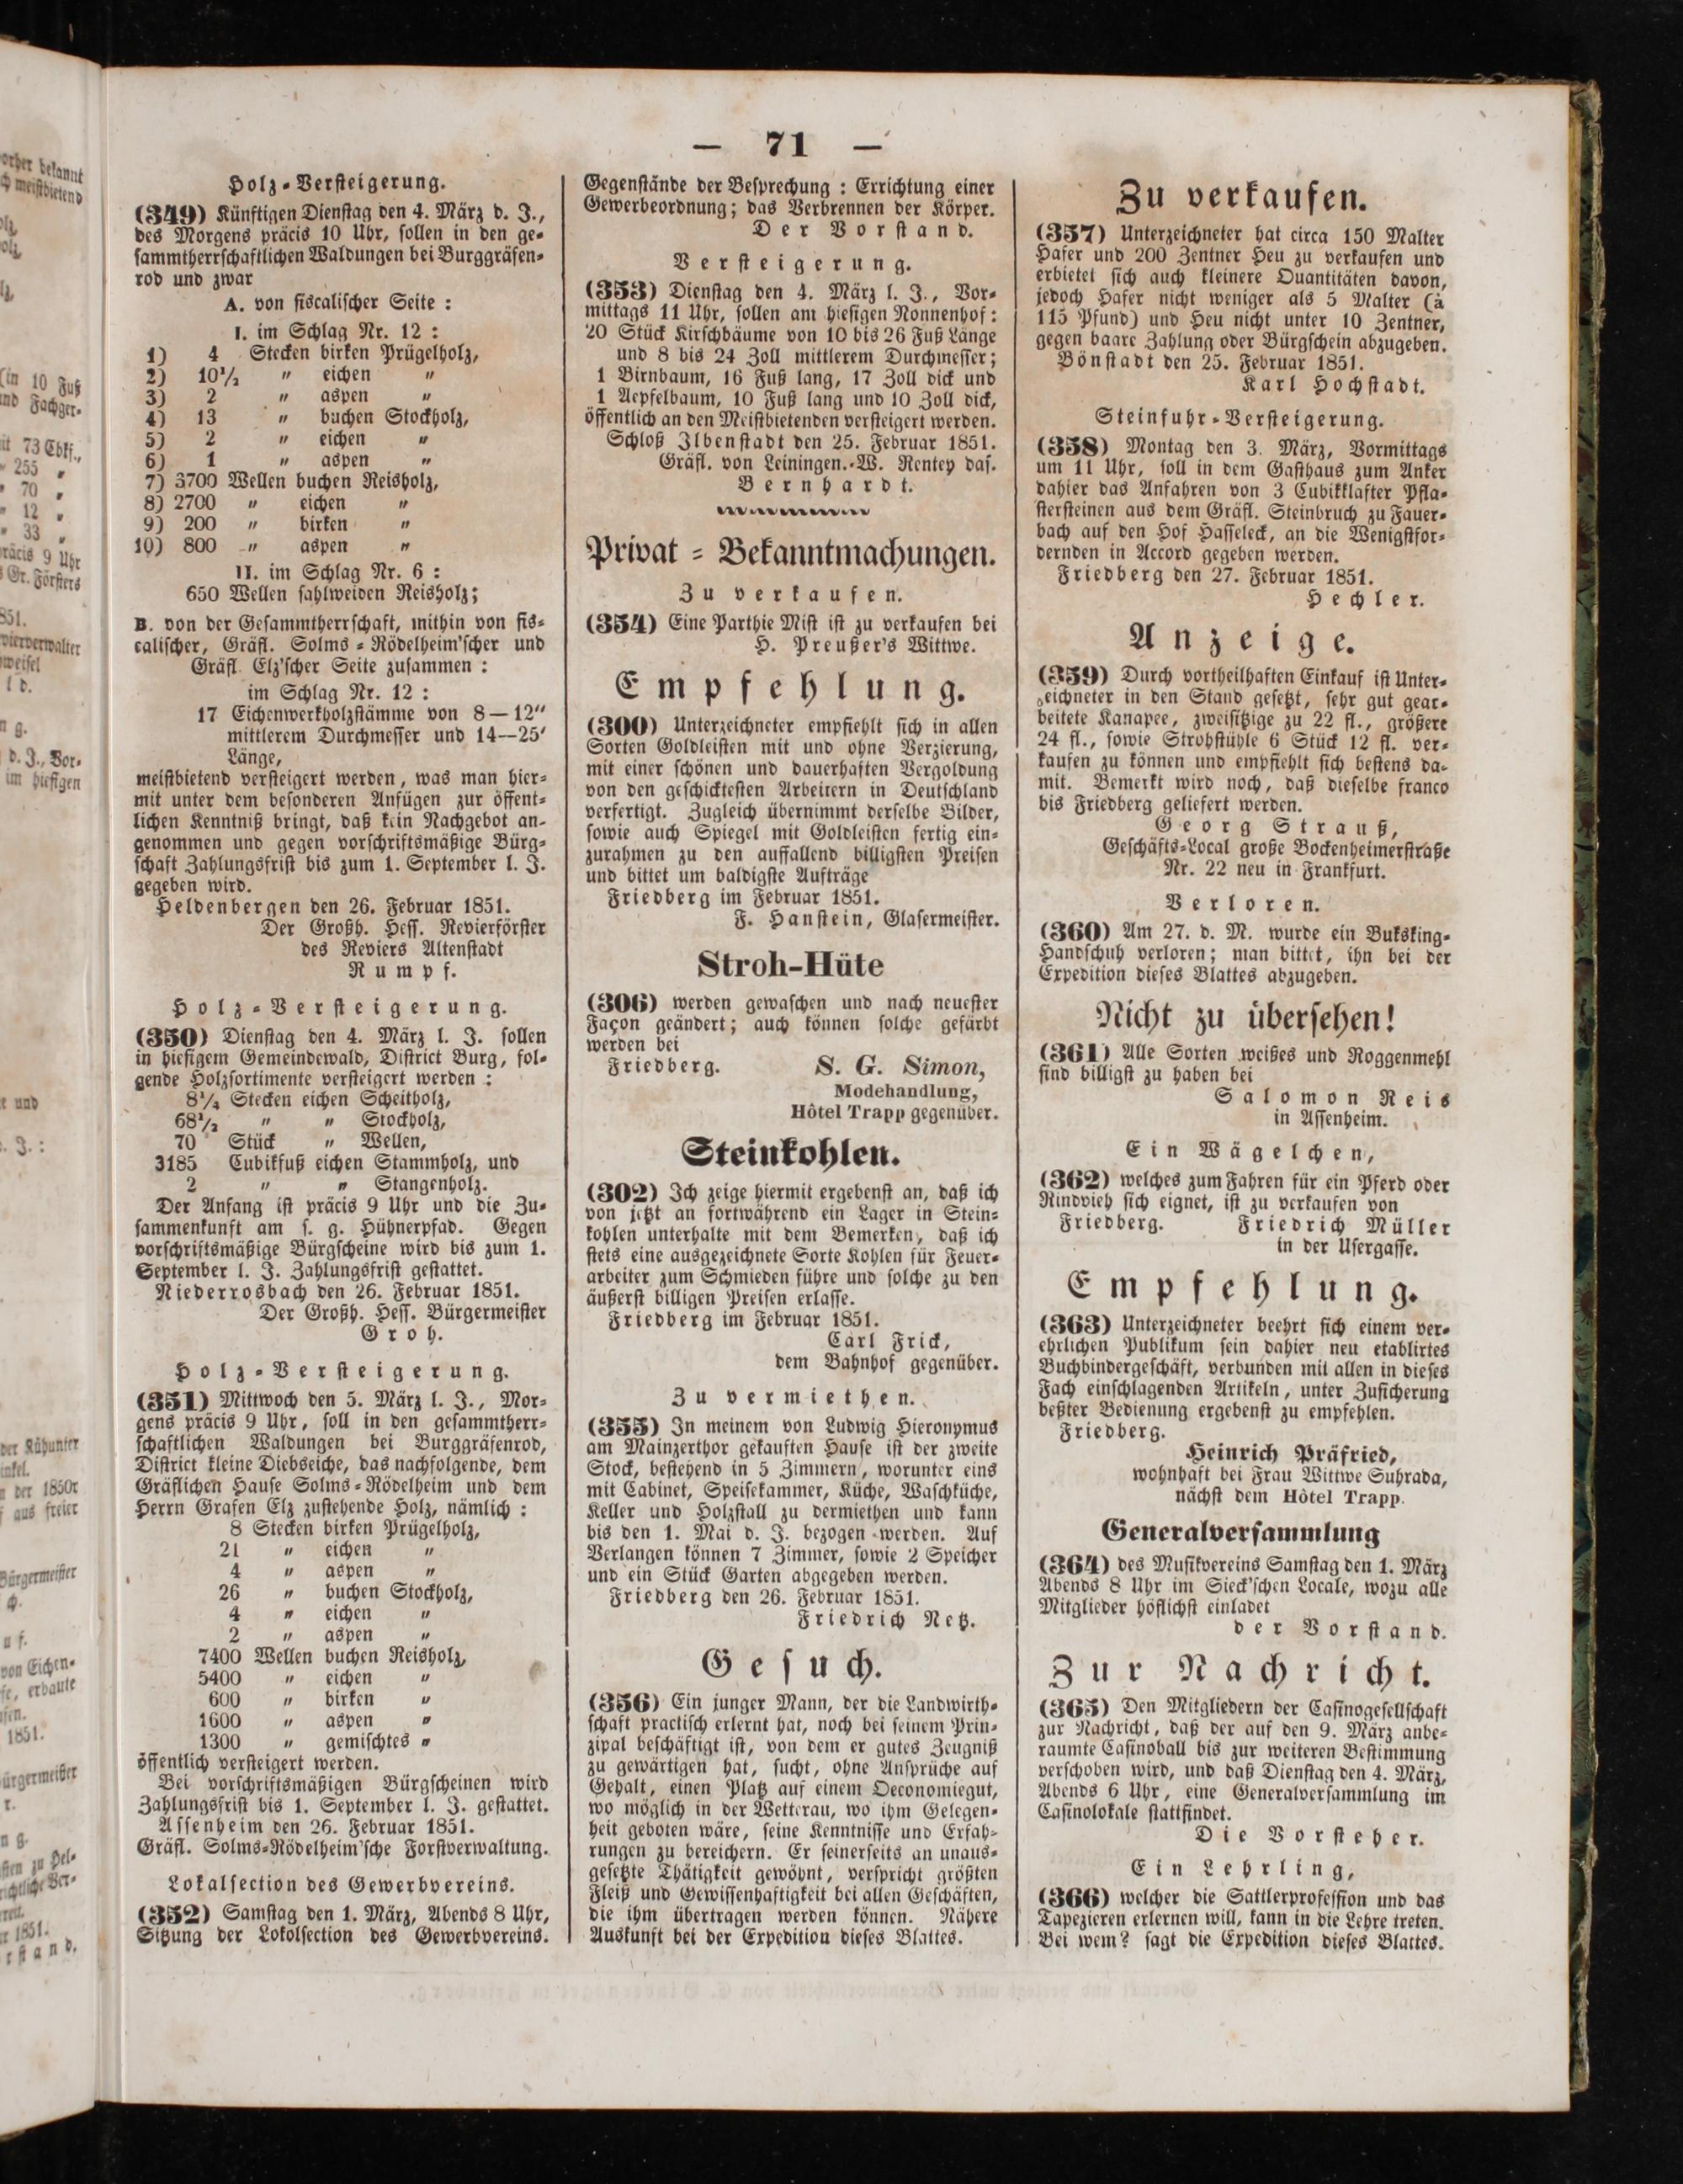 — 71 —
Holz-Versteigerung.
(349) Künftigen Dienstag den 4. März d. J.,
des Morgens präcis 10 Uhr, sollen in den ge-
sammtherrschaftlichen Waldungen bei Burggräfen-
rod und zwar
A. von fiscalischer Seite :
I. im Schlag Nr. 12 :
1) 4 Stecken birken Prügelholz,
2) 10½ " eichen "
3) 2 " aspen "
4) 13 " buchen Stockholz,
5) 2 " eichen "
6) 1 " aspen "
7) 3700 Wellen buchen Reisholz,
8) 2700 " eichen "
9) 200 " birken "
10) 800 " aspen "
II. im Schlag Nr. 6 :
650 Wellen sahlweiden Reisholz;
B. von der Gesammtherrschaft, mithin von fis-
calischer, Gräfl. Solms-Rödelheim'scher und
Gräfl. Elz'scher Seite zusammen :
im Schlag Nr. 12 :
17 Eichenwerkholzstämme von 8—12"
mittlerem Durchmesser und 14—25'
Länge,
meistbietend versteigert werden, was man hier-
mit unter dem besonderen Anfügen zur öffent-
lichen Kenntniß bringt, daß kein Nachgebot an-
genommen und gegen vorschriftsmäßige Bürg-
schaft Zahlungsfrist bis zum 1. September l. J.
gegeben wird.
Heldenbergen den 26. Februar 1851.
Der Großh. Hess. Revierförster
des Reviers Altenstadt
Rumpf.
Holz-Versteigerung.
(350) Dienstag den 4. März l. J. sollen
in hiesigem Gemeindewald, District Burg, fol-
gende Holzsortimente versteigert werden :
8¼ Stecken eichen Scheitholz,
68½ " " Stockholz,
70 Stück " Wellen,
3185 Cubikfuß eichen Stammholz, und
2 " " Stangenholz.
Der Anfang ist präcis 9 Uhr und die Zu-
sammenkunft am s. g. Hühnerpfad. Gegen
vorschriftsmäßige Bürgscheine wird bis zum 1.
September l. J. Zahlungsfrist gestattet.
Niederrosbach den 26. Februar 1851.
Der Großh. Hess. Bürgermeister
Groh.
Holz-Versteigerung.
(351) Mittwoch den 5. März l. J., Mor-
gens präcis 9 Uhr, soll in den gesammtherr-
schaftlichen Waldungen bei Burggräfenrod,
District kleine Diebseiche, das nachfolgende, dem
Gräflichen Hause Solms-Rödelheim und dem
Herrn Grafen Elz zustehende Holz, nämlich :
8 Stecken birken Prügelholz,
21 " eichen "
4 " aspen "
26 " buchen Stockholz,
4 " eichen "
2 " aspen "
7400 Wellen buchen Reisholz,
5400 " eichen "
600 " birken "
1600 " aspen "
1300 " gemischtes "
öffentlich versteigert werden.
Bei vorschriftsmäßigen Bürgscheinen wird
Zahlungsfrist bis 1. September l. J. gestattet.
Assenheim den 26. Februar 1851.
Gräfl. Solms-Rödelheim'sche Forstverwaltung.
Lokalsection des Gewerbvereins.
(352) Samstag den 1. März, Abends 8 Uhr,
Sitzung der Lokolsection des Gewerbvereins.
Gegenstände der Besprechung : Errichtung einer
Gewerbeordnung; das Verbrennen der Körper.
Der Vorstand.
Versteigerung.
(353) Dienstag den 4. März l. J., Vor-
mittags 11 Uhr, sollen am hiesigen Nonnenhof:
20 Stück Kirschbäume von 10 bis 26 Fuß Länge
und 8 bis 24 Zoll mittlerem Durchmesser;
1 Birnbaum, 16 Fuß lang, 17 Zoll dick und
1 Aepfelbaum, 10 Fuß lang und 10 Zoll dick,
öffentlich an den Meistbietenden versteigert werden.
Schloß Ilbenstadt den 25. Februar 1851.
Gräfl. von Leiningen.-W. Rentey das.
Bernhardt.
Privat-Bekanntmachungen.
Zu verkaufen.
(354) Eine Parthie Mist ist zu verkaufen bei
H. Preußer's Wittwe.
Empfehlung.
(300) Unterzeichneter empfiehlt sich in allen
Sorten Goldleisten mit und ohne Verzierung,
mit einer schönen und dauerhaften Vergoldung
von den geschicktesten Arbeitern in Deutschland
verfertigt. Zugleich übernimmt derselbe Bilder,
sowie auch Spiegel mit Goldleisten fertig ein-
zurahmen zu den auffallend billigsten Preisen
und bittet um baldigste Aufträge
Friedberg im Februar 1851.
F. Hanstein, Glasermeister.
Stroh-Hüte
(306) werden gewaschen und nach neuester
Façon geändert; auch können solche gefärbt
werden bei
Friedberg. S. G. Simon,
Modehandlung,
Hôtel Trapp gegenüber.
Steinkohlen.
(302) Ich zeige hiermit ergebenst an, daß ich
von jetzt an fortwährend ein Lager in Stein-
kohlen unterhalte mit dem Bemerken, daß ich
stets eine ausgezeichnete Sorte Kohlen für Feuer-
arbeiter zum Schmieden führe und solche zu den
äußerst billigen Preisen erlasse.
Friedberg im Februar 1851.
Carl Frick,
dem Bahnhof gegenüber.
Zu vermiethen.
(355) In meinem von Ludwig Hieronymus
am Mainzerthor gekauften Hause ist der zweite
Stock, bestehend in 5 Zimmern, worunter eins
mit Cabinet, Speisekammer, Küche, Waschküche,
Keller und Holzstall zu dermiethen und kann
bis den 1. Mai d. J. bezogen werden. Auf
Verlangen können 7 Zimmer, sowie 2 Speicher
und ein Stück Garten abgegeben werden.
Friedberg den 26. Februar 1851.
Friedrich Netz.
Gesuch.
(356) Ein junger Mann, der die Landwirth-
schaft practisch erlernt hat, noch bei seinem Prin-
zipal beschäftigt ist, von dem er gutes Zeugniß
zu gewärtigen hat, sucht, ohne Ansprüche auf
Gehalt, einen Platz auf einem Oeconomiegut,
wo möglich in der Wetterau, wo ihm Gelegen-
heit geboten wäre, seine Kenntnisse und Erfah-
rungen zu bereichern. Er seinerseits an unaus-
gesetzte Thätigkeit gewöhnt, verspricht größten
Fleiß und Gewissenhaftigkeit bei allen Geschäften,
die ihm übertragen werden können. Nähere
Auskunft bei der Expedition dieses Blattes.
Zu verkaufen.
(357) Unterzeichneter hat circa 150 Malter
Hafer und 200 Zentner Heu zu verkaufen und
erbietet sich auch kleinere Quantitäten davon,
jedoch Hafer nicht weniger als 5 Malter (à
115 Pfund) und Heu nicht unter 10 Zentner,
gegen baare Zahlung oder Bürgschein abzugeben.
Bönstadt den 25. Februar 1851.
Karl Hochstadt.
Steinfuhr-Versteigerung.
(358) Montag den 3. März, Vormittags
um 11 Uhr, soll in dem Gasthaus zum Anker
dahier das Anfahren von 3 Cubikklafter Pfla-
stersteinen aus dem Gräfl. Steinbruch zu Fauer-
bach auf den Hof Hasseleck, an die Wenigstfor-
dernden in Accord gegeben werden.
Friedberg den 27. Februar 1851.
Hechler.
Anzeige.
(359) Durch vortheilhaften Einkauf ist Unter-
zeichneter in den Stand gesetzt, sehr gut gear-
beitete Kanapee, zweisitzige zu 22 fl., größere
24 fl., sowie Strohstühle 6 Stück 12 fl. ver-
kaufen zu können und empfiehlt sich bestens da-
mit. Bemerkt wird noch, daß dieselbe franco
bis Friedberg geliefert werden.
Georg Strauß,
Geschäfts-Local große Bockenheimerstraße
Nr. 22 neu in Frankfurt.
Verloren.
(360) Am 27. d. M. wurde ein Buksking-
Handschuh verloren; man bittet, ihn bei der
Expedition dieses Blattes abzugeben.
Nicht zu übersehen!
(361) Alle Sorten weißes und Roggenmehl
sind billigst zu haben bei
Salomon Reis
in Assenheim.
Ein Wägelchen,
(362) welches zum Fahren für ein Pferd oder
Rindvieh sich eignet, ist zu verkaufen von
Friedberg. Friedrich Müller
in der Usergasse.
Empfehlung.
(363) Unterzeichneter beehrt sich einem ver-
ehrlichen Publikum sein dahier neu etablirtes
Buchbindergeschäft, verbunden mit allen in dieses
Fach einschlagenden Artikeln, unter Zusicherung
beßter Bedienung ergebenst zu empfehlen.
Friedberg.
Heinrich Präfried,
wohnhaft bei Frau Wittwe Suhrada,
nächst dem Hôtel Trapp.
Generalversammlung
(364) des Musikvereins Samstag den 1. März
Abends 8 Uhr im Sieck'schen Locale, wozu alle
Mitglieder höflichst einladet
der Vorstand.
Zur Nachricht.
(365) Den Mitgliedern der Casinogesellschaft
zur Nachricht, daß der auf den 9. März anbe-
raumte Casinoball bis zur weiteren Bestimmung
verschoben wird, und daß Dienstag den 4. März,
Abends 6 Uhr, eine Generalversammlung im
Casinolokale stattfindet.
Die Vorsteher.
Ein Lehrling,
(366) welcher die Sattlerprofession und das
Tapezieren erlernen will, kann in die Lehre treten.
Bei wem? sagt die Expedition dieses Blattes.